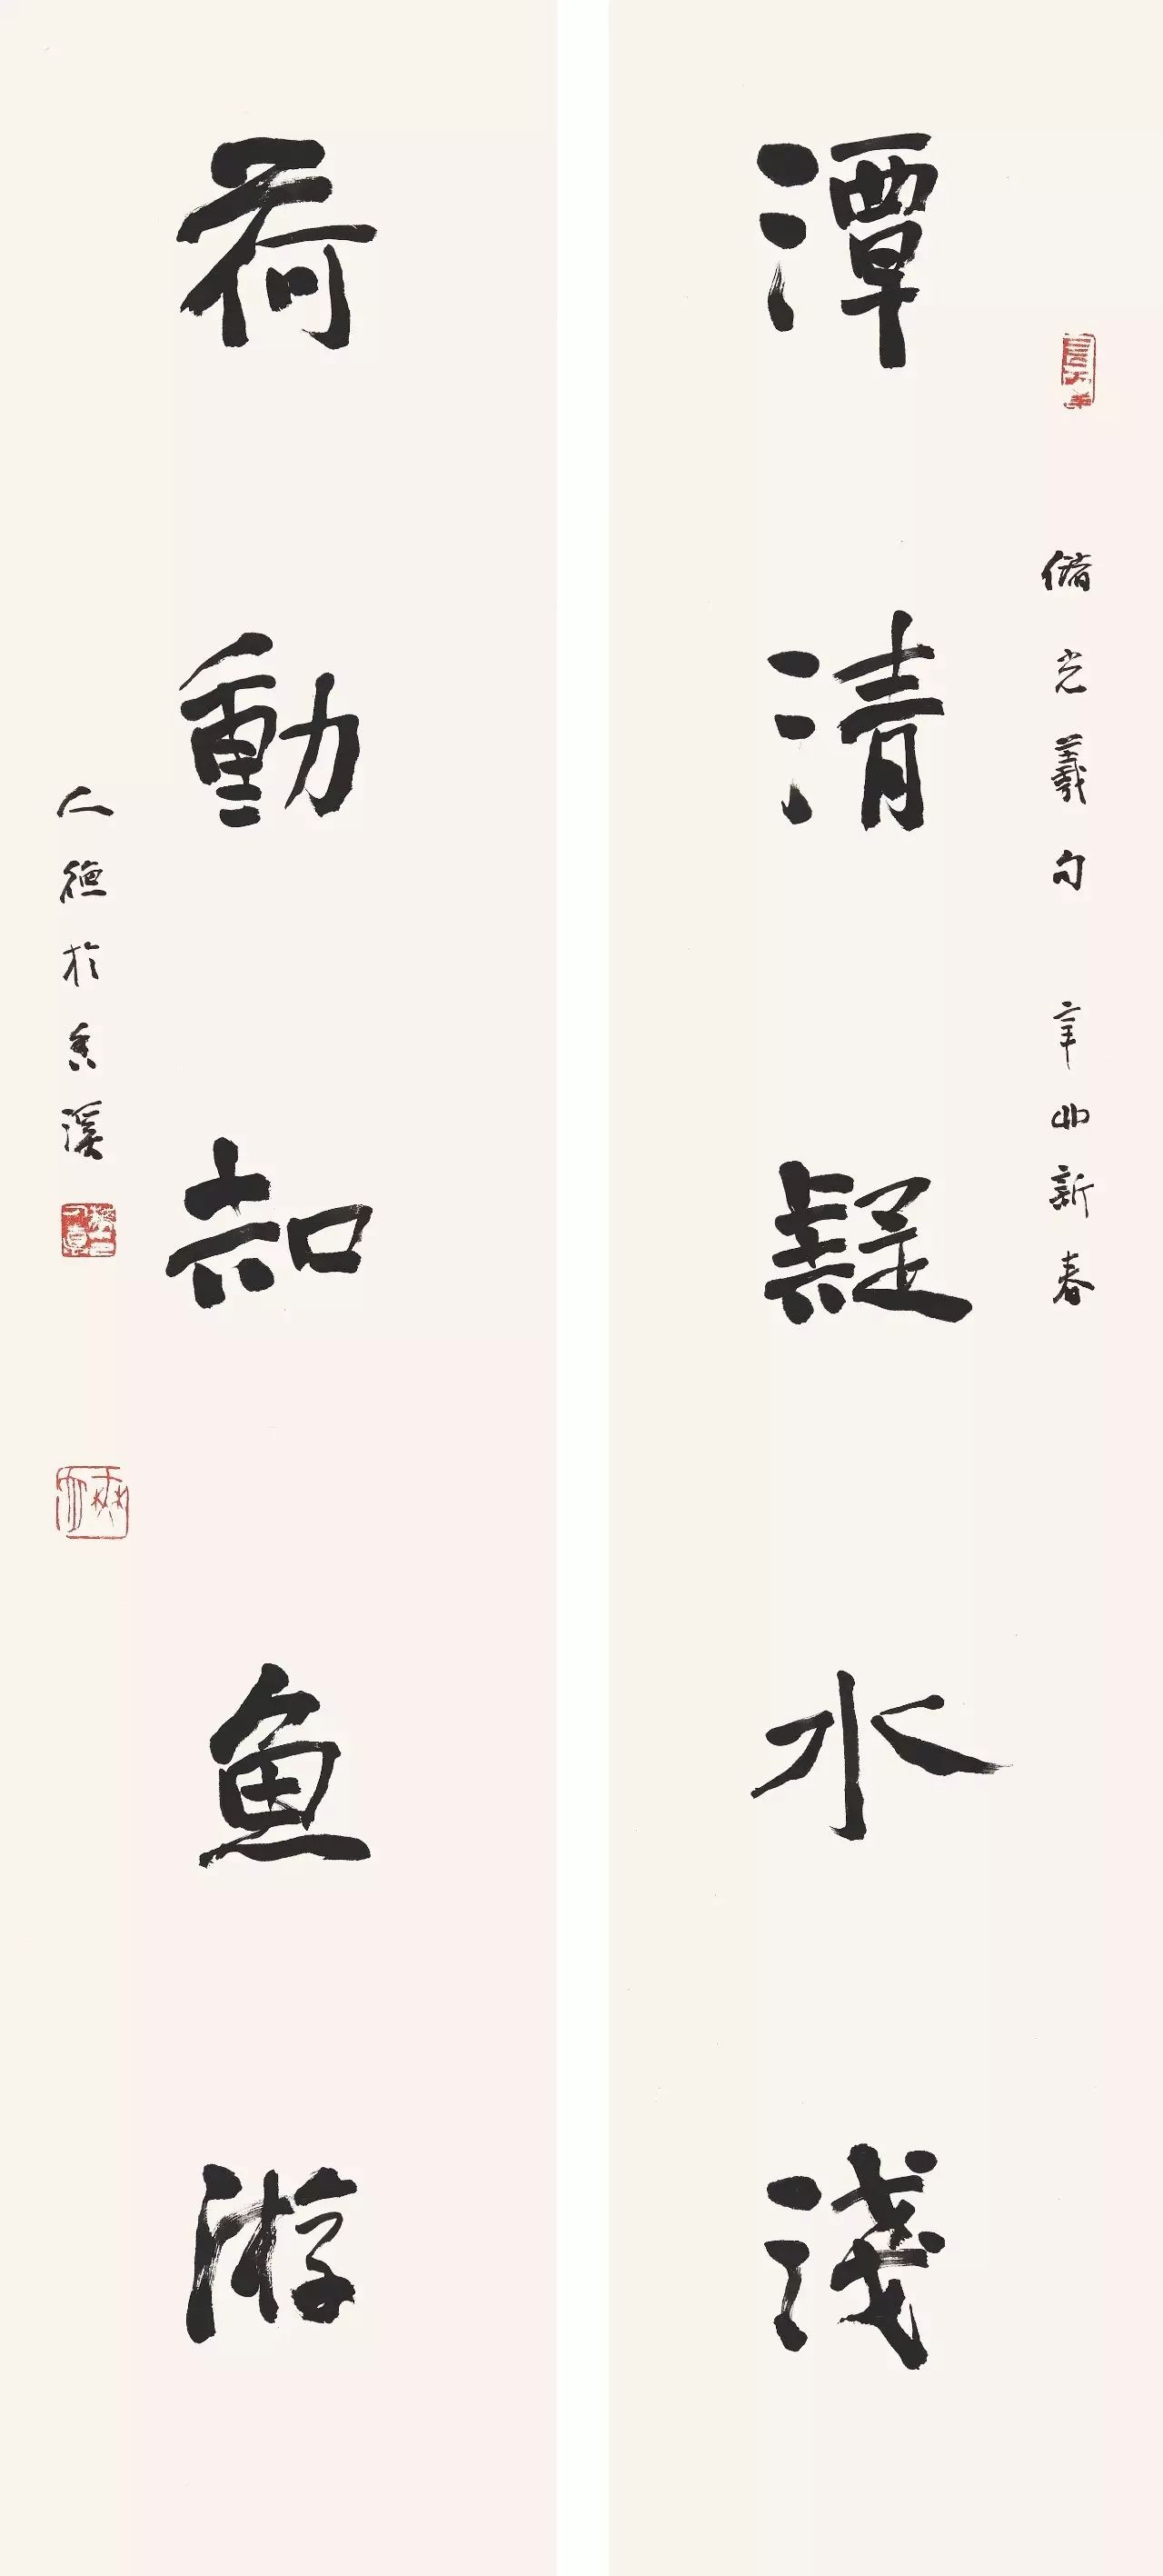 潭清疑水淺
儲光羲句 辛丑新春
荷動知魚游
仁德於香溪